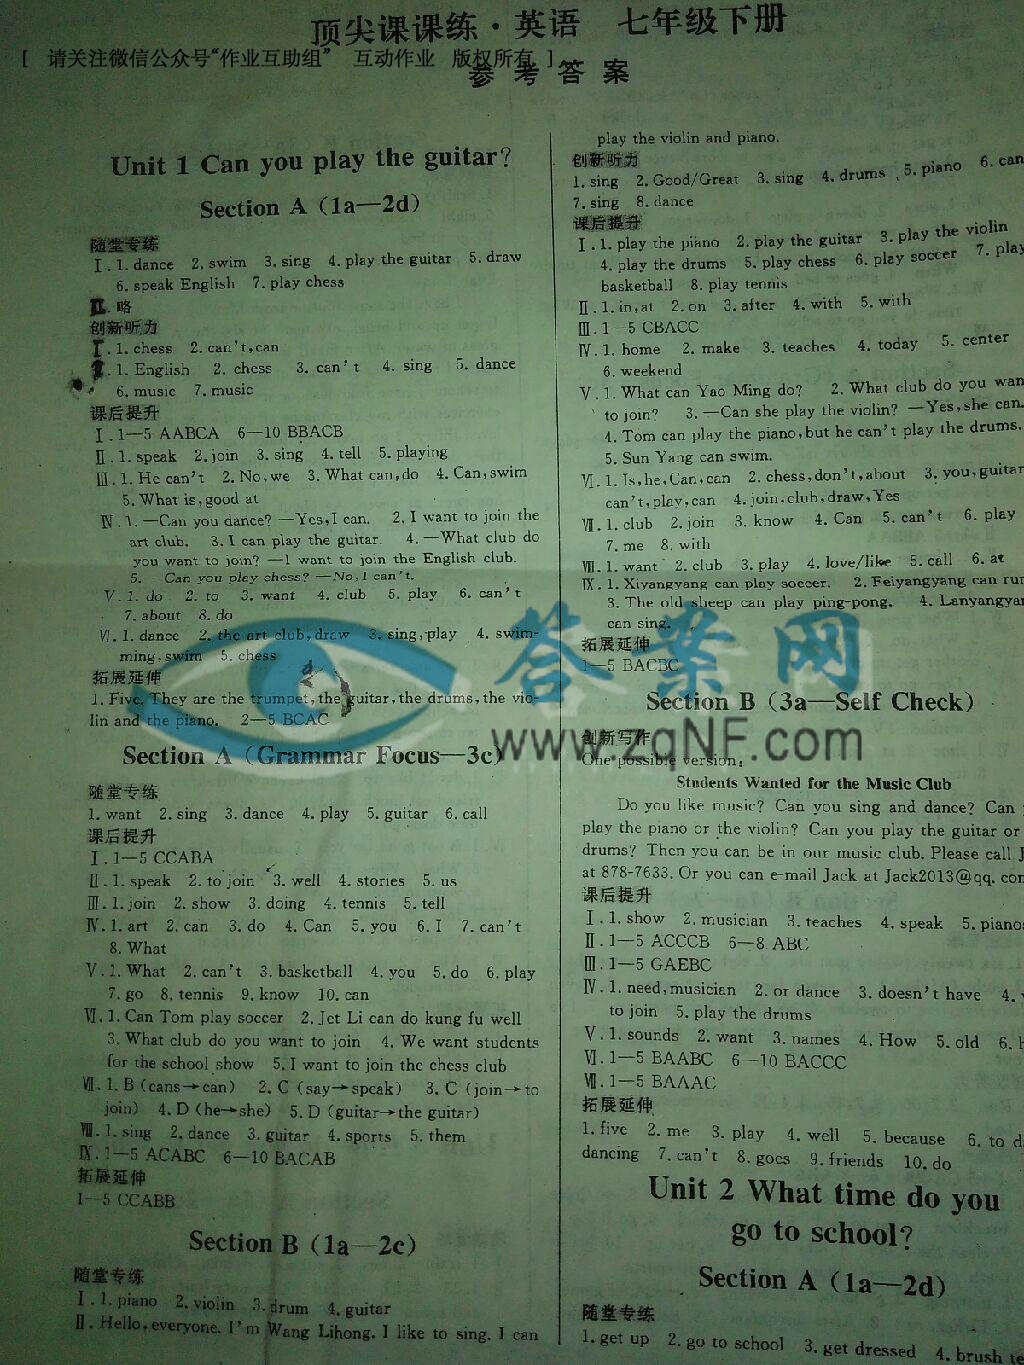 顶尖课课练·英语 七年级下册
[ 请关注微信公众号“作业互助组” 互动作业 版权所有 ]
参考答案
Unit 1 Can you play the guitar?
Section A (1a—2d)
随堂专练
Ⅰ. 1. dance 2. swim 3. sing 4. play the guitar 5. draw
6. speak English 7. play chess
Ⅱ. 略
创新听力
Ⅰ. 1. chess 2. can't, can
1. English 2. chess 3. can't 4. sing 5. dance
6. music 7. music
课后提升
Ⅰ. 1—5 AABCA 6—10 BBACB
Ⅱ. 1. speak 2. join 3. sing 4. tell 5. playing
Ⅲ. 1. He can't 2. No, we 3. What can, do 4. Can, swim
5. What is, good at
Ⅳ. 1. —Can you dance? —Yes, I can. 2. I want to join the
art club. 3. I can play the guitar. 4. —What club do
you want to join? —I want to join the English club.
5. Can you play chess? —No, I can't.
Ⅴ. 1. do 2. to 3. want 4. club 5. play 6. can't
7. about 8. do
Ⅵ. 1. dance 2. the art club, draw 3. sing, play 4. swim-
ming, swim 5. chess
拓展延伸
1. Five. They are the trumpet, the guitar, the drums, the vio-
lin and the piano. 2—5 BCAC
Section A (Grammar Focus—3c)
随堂专练
1. want 2. sing 3. dance 4. play 5. guitar 6. call
课后提升
Ⅰ. 1—5 CCABA
Ⅱ. 1. speak 2. to join 3. well 4. stories 5. us
Ⅲ. 1. join 2. show 3. doing 4. tennis 5. tell
Ⅳ. 1. art 2. can 3. do 4. Can 5. you 6. I 7. can't
8. What
Ⅴ. 1. What 2. can't 3. basketball 4. you 5. do 6. play
7. go 8. tennis 9. know 10. can
Ⅵ. 1. Can Tom play soccer 2. Jet Li can do kung fu well
3. What club do you want to join 4. We want students
for the school show 5. I want to join the chess club
Ⅶ. 1. B (cans→can) 2. C (say→speak) 3. C (join→to
join) 4. D (he→she) 5. D (guitar→the guitar)
Ⅷ. 1. sing 2. dance 3. guitar 4. sports 5. them
Ⅸ. 1—5 ACABC 6—10 BACAB
拓展延伸
1—5 CCABB
Section B (1a—2c)
随堂专练
Ⅰ. 1. piano 2. violin 3. drum 4. guitar
Ⅱ. Hello, everyone. I'm Wang Lihong. I like to sing. I can
play the violin and piano.
创新听力
1. sing 2. Good/Great 3. sing 4. drums 5. piano 6. can
7. sing 8. dance
课后提升
Ⅰ. 1. play the piano 2. play the guitar 3. play the violin
4. play the drums 5. play chess 6. play soccer 7. play
basketball 8. play tennis
Ⅱ. 1. in, at 2. on 3. after 4. with 5. with
Ⅲ. 1—5 CBACC
Ⅳ. 1. home 2. make 3. teaches 4. today 5. center
6. weekend
Ⅴ. 1. What can Yao Ming do? 2. What club do you wan
to join? 3. —Can she play the violin? —Yes, she can.
4. Tom can play the piano, but he can't play the drums.
5. Sun Yang can swim.
Ⅵ. 1. Is, he, Can, can 2. chess, don't, about 3. you, guitar
can't, play, can 4. join, club, draw, Yes
Ⅶ. 1. club 2. join 3. know 4. Can 5. can't 6. play
7. me 8. with
Ⅷ. 1. want 2. club 3. play 4. love/like 5. call 6. at
Ⅸ. 1. Xiyangyang can play soccer. 2. Feiyangyang can run
3. The old sheep can play ping-pong. 4. Lanyangyan
can sing.
拓展延伸
1—5 BACBC
Section B (3a—Self Check)
创新写作
One possible version:
Students Wanted for the Music Club
Do you like music? Can you sing and dance? Can
play the piano or the violin? Can you play the guitar or
drums? Then you can be in our music club. Please call J
at 878-7633. Or you can e-mail Jack at Jack2013@qq. com
课后提升
Ⅰ. 1. show 2. musician 3. teaches 4. speak 5. pianos
Ⅱ. 1—5 ACCCB 6—8 ABC
Ⅲ. 1—5 GAEBC
Ⅳ. 1. need, musician 2. or dance 3. doesn't have 4.
to join 5. play the drums
Ⅴ. 1. sounds 2. want 3. names 4. How 5. old 6.
Ⅵ. 1—5 BAABC 6—10 BACCC
Ⅶ. 1—5 BAAAC
拓展延伸
1. five 2. me 3. play 4. well 5. because 6. to da
dancing 7. can't 8. goes 9. friends 10. do
Unit 2 What time do you
go to school?
Section A (1a—2d)
随堂专练
1. get up 2. go to school 3. get dressed 4. brush te
答案网
www.zqNF.com